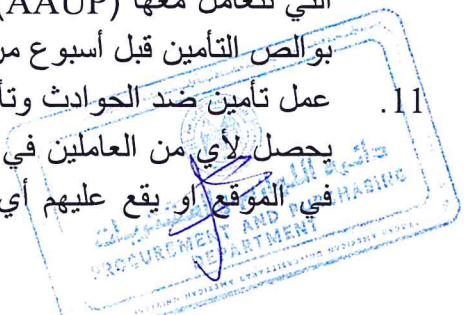 التي تتعامل معها (AAUP)
بوالص التأمين قبل أسبوع من
11. عمل تأمين ضد الحوادث وتأ
يحصل لأي من العاملين في
في الموقع او يقع عليهم أي
دائرة اللوازم والمشتريات
PROCUREMENT AND PURCHASING
DEPARTMENT